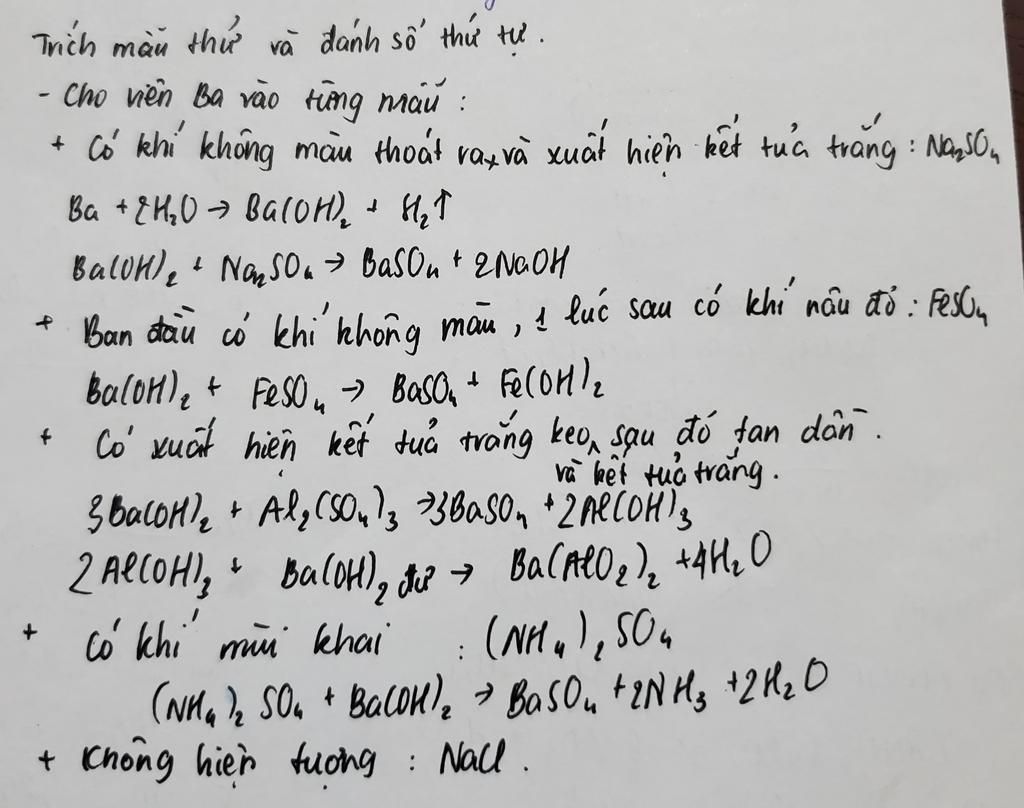 Trích mẫu thử và đánh số thứ tự.
- Cho viên Ba vào từng mẫu :
+ Có khí không màu thoát ra, và xuất hiện kết tủa trắng : Na₂SO₄
Ba + 2H₂O → Ba(OH)₂ + H₂↑
Ba(OH)₂ + Na₂SO₄ → BaSO₄ + 2NaOH
+ Ban đầu có khí không màu, 1 lúc sau có khí nâu đỏ : FeSO₄
Ba(OH)₂ + FeSO₄ → BaSO₄ + Fe(OH)₂
+ Có xuất hiện kết tủa trắng keo, sau đó tan dần.
và kết tủa trắng.
3Ba(OH)₂ + Al₂(SO₄)₃ → 3BaSO₄ + 2Al(OH)₃
2Al(OH)₃ + Ba(OH)₂ dư → Ba(AlO₂)₂ + 4H₂O
+ Có khí mùi khai : (NH₄)₂SO₄
(NH₄)₂SO₄ + Ba(OH)₂ → BaSO₄ + 2NH₃ + 2H₂O
+ Không hiện tượng : NaCl.